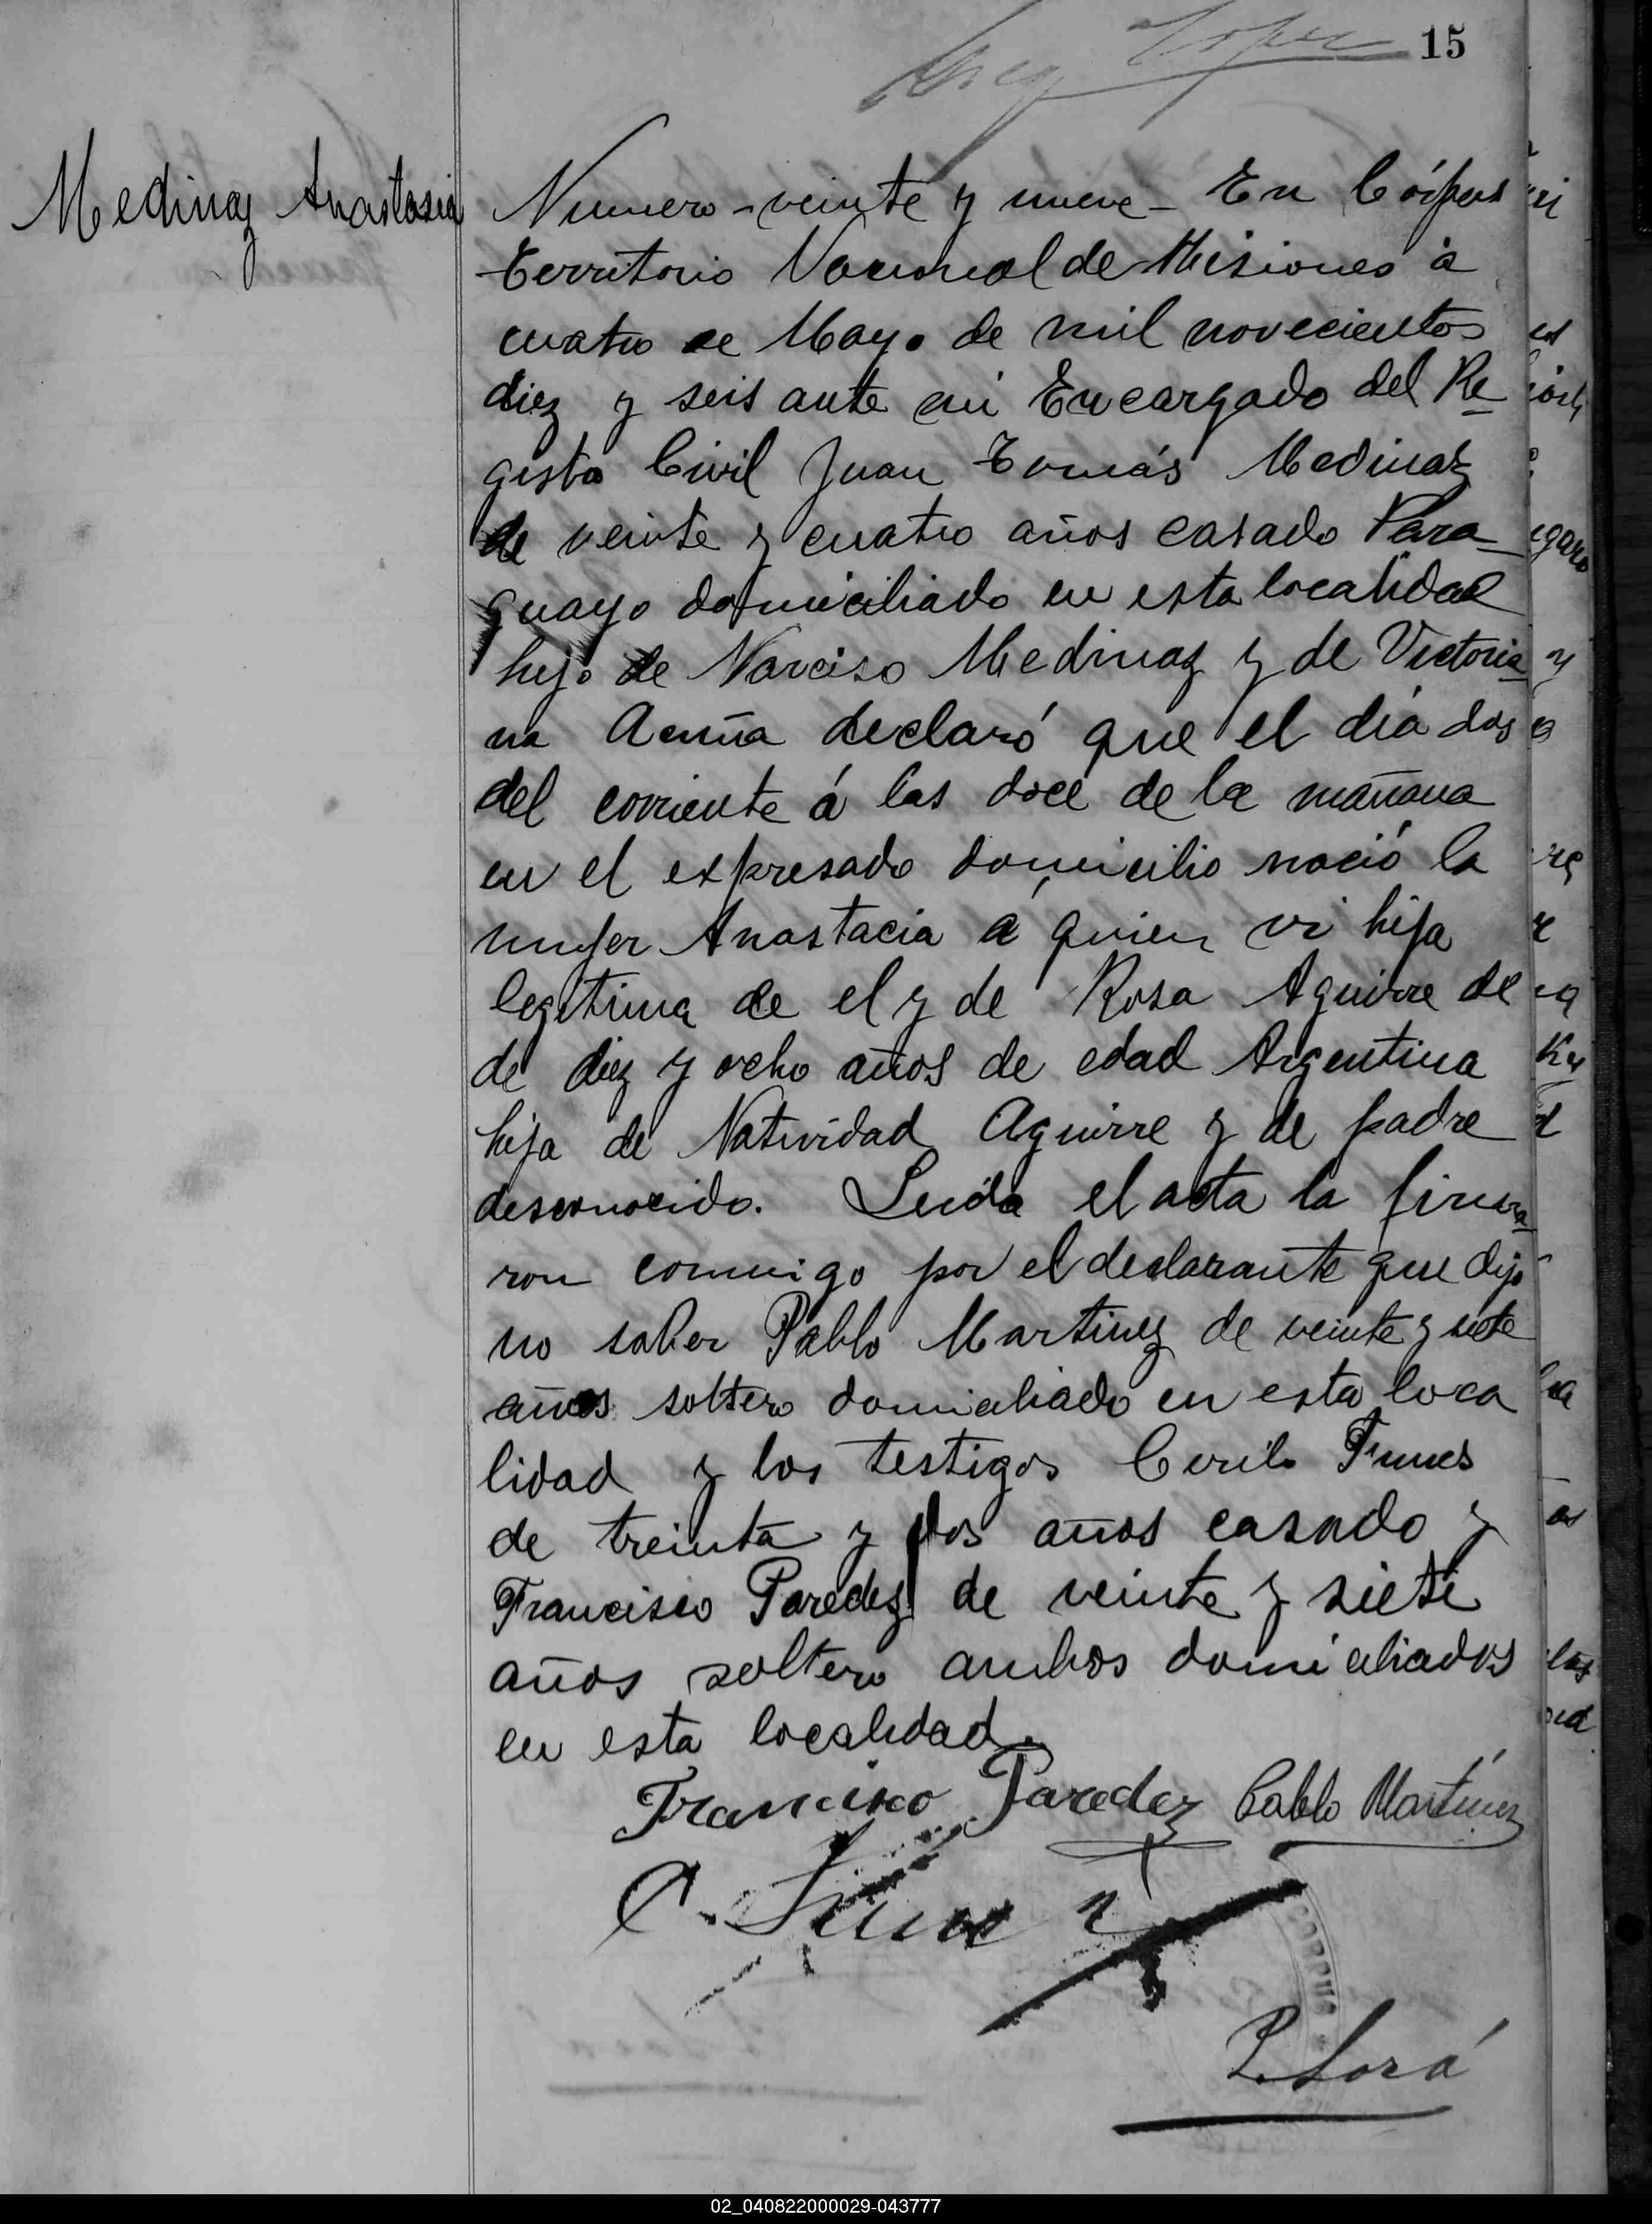 15
Medinaz Anastasia
Numero - veinte y nueve - En Córpus
Territorio Nacional de Misiones à
cuatro de Mayo de mil novecientos
diez y seis ante mi Encargado del Re-
gistro Civil Juan Tomás Medinaz
de veinte y cuatro años casado Para-
guayo domiciliado en esta localidad
hijo de Narciso Medinaz y de Victoria-
na Acuña declaró que el día dos
del corriente á las doce de la mañana
en el expresado domicilio nació la
mujer Anastacia á quien vi hija
legitima de el y de Rosa Aguirre de
de diez y ocho años de edad Argentina
hija de Natividad Aguirre y de padre
desconocido. Leida el acta la firma-
ron conmigo por el declarante que dijo
no saber Pablo Martinez de veinte y siete
años soltero domiciliado en esta loca
lidad y los testigos Cirilo Funes
de treinta y dos años casado y
Francisco Paredez de veinte y siete
años soltero ambos domiciliados
en esta localidad.
Francisco Paredez Pablo Martinez
C. Funes
CORPUS
02_040822000029-043777